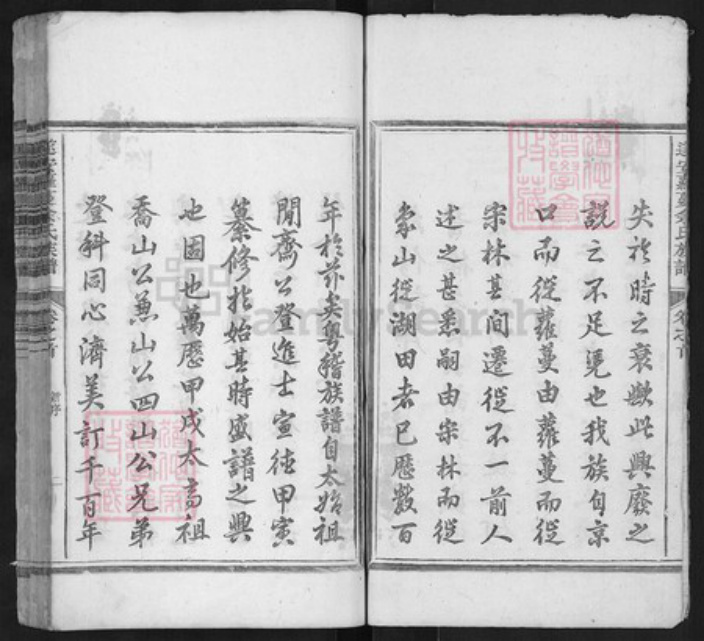 失於時之衰歟此興廢之
說之不足憑也我族自京
口而從蘿蔓由蘿蔓而從
宋林其間遷從不一前人
述之甚悉嗣由宋林而從
象山從湖田者已歷數百
年於茲矣粵稽族譜自太始祖
閒齋公登進士宣德甲寅
纂修於始其時盛譜之興
也固也萬歷甲戌太高祖
喬山公兼山公四山公兄弟
登科同心濟美訂千百年
familysearch